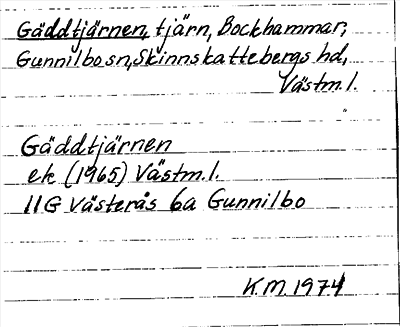 Gäddtjärnen, tjärn, Bockhammar,
Gunnilbo sn, Skinnskattebergs hd,
Västm.l.
Gäddtjärnen
ek (1965) Västm.l.
11G Västerås 6a Gunnilbo
K.M. 1974